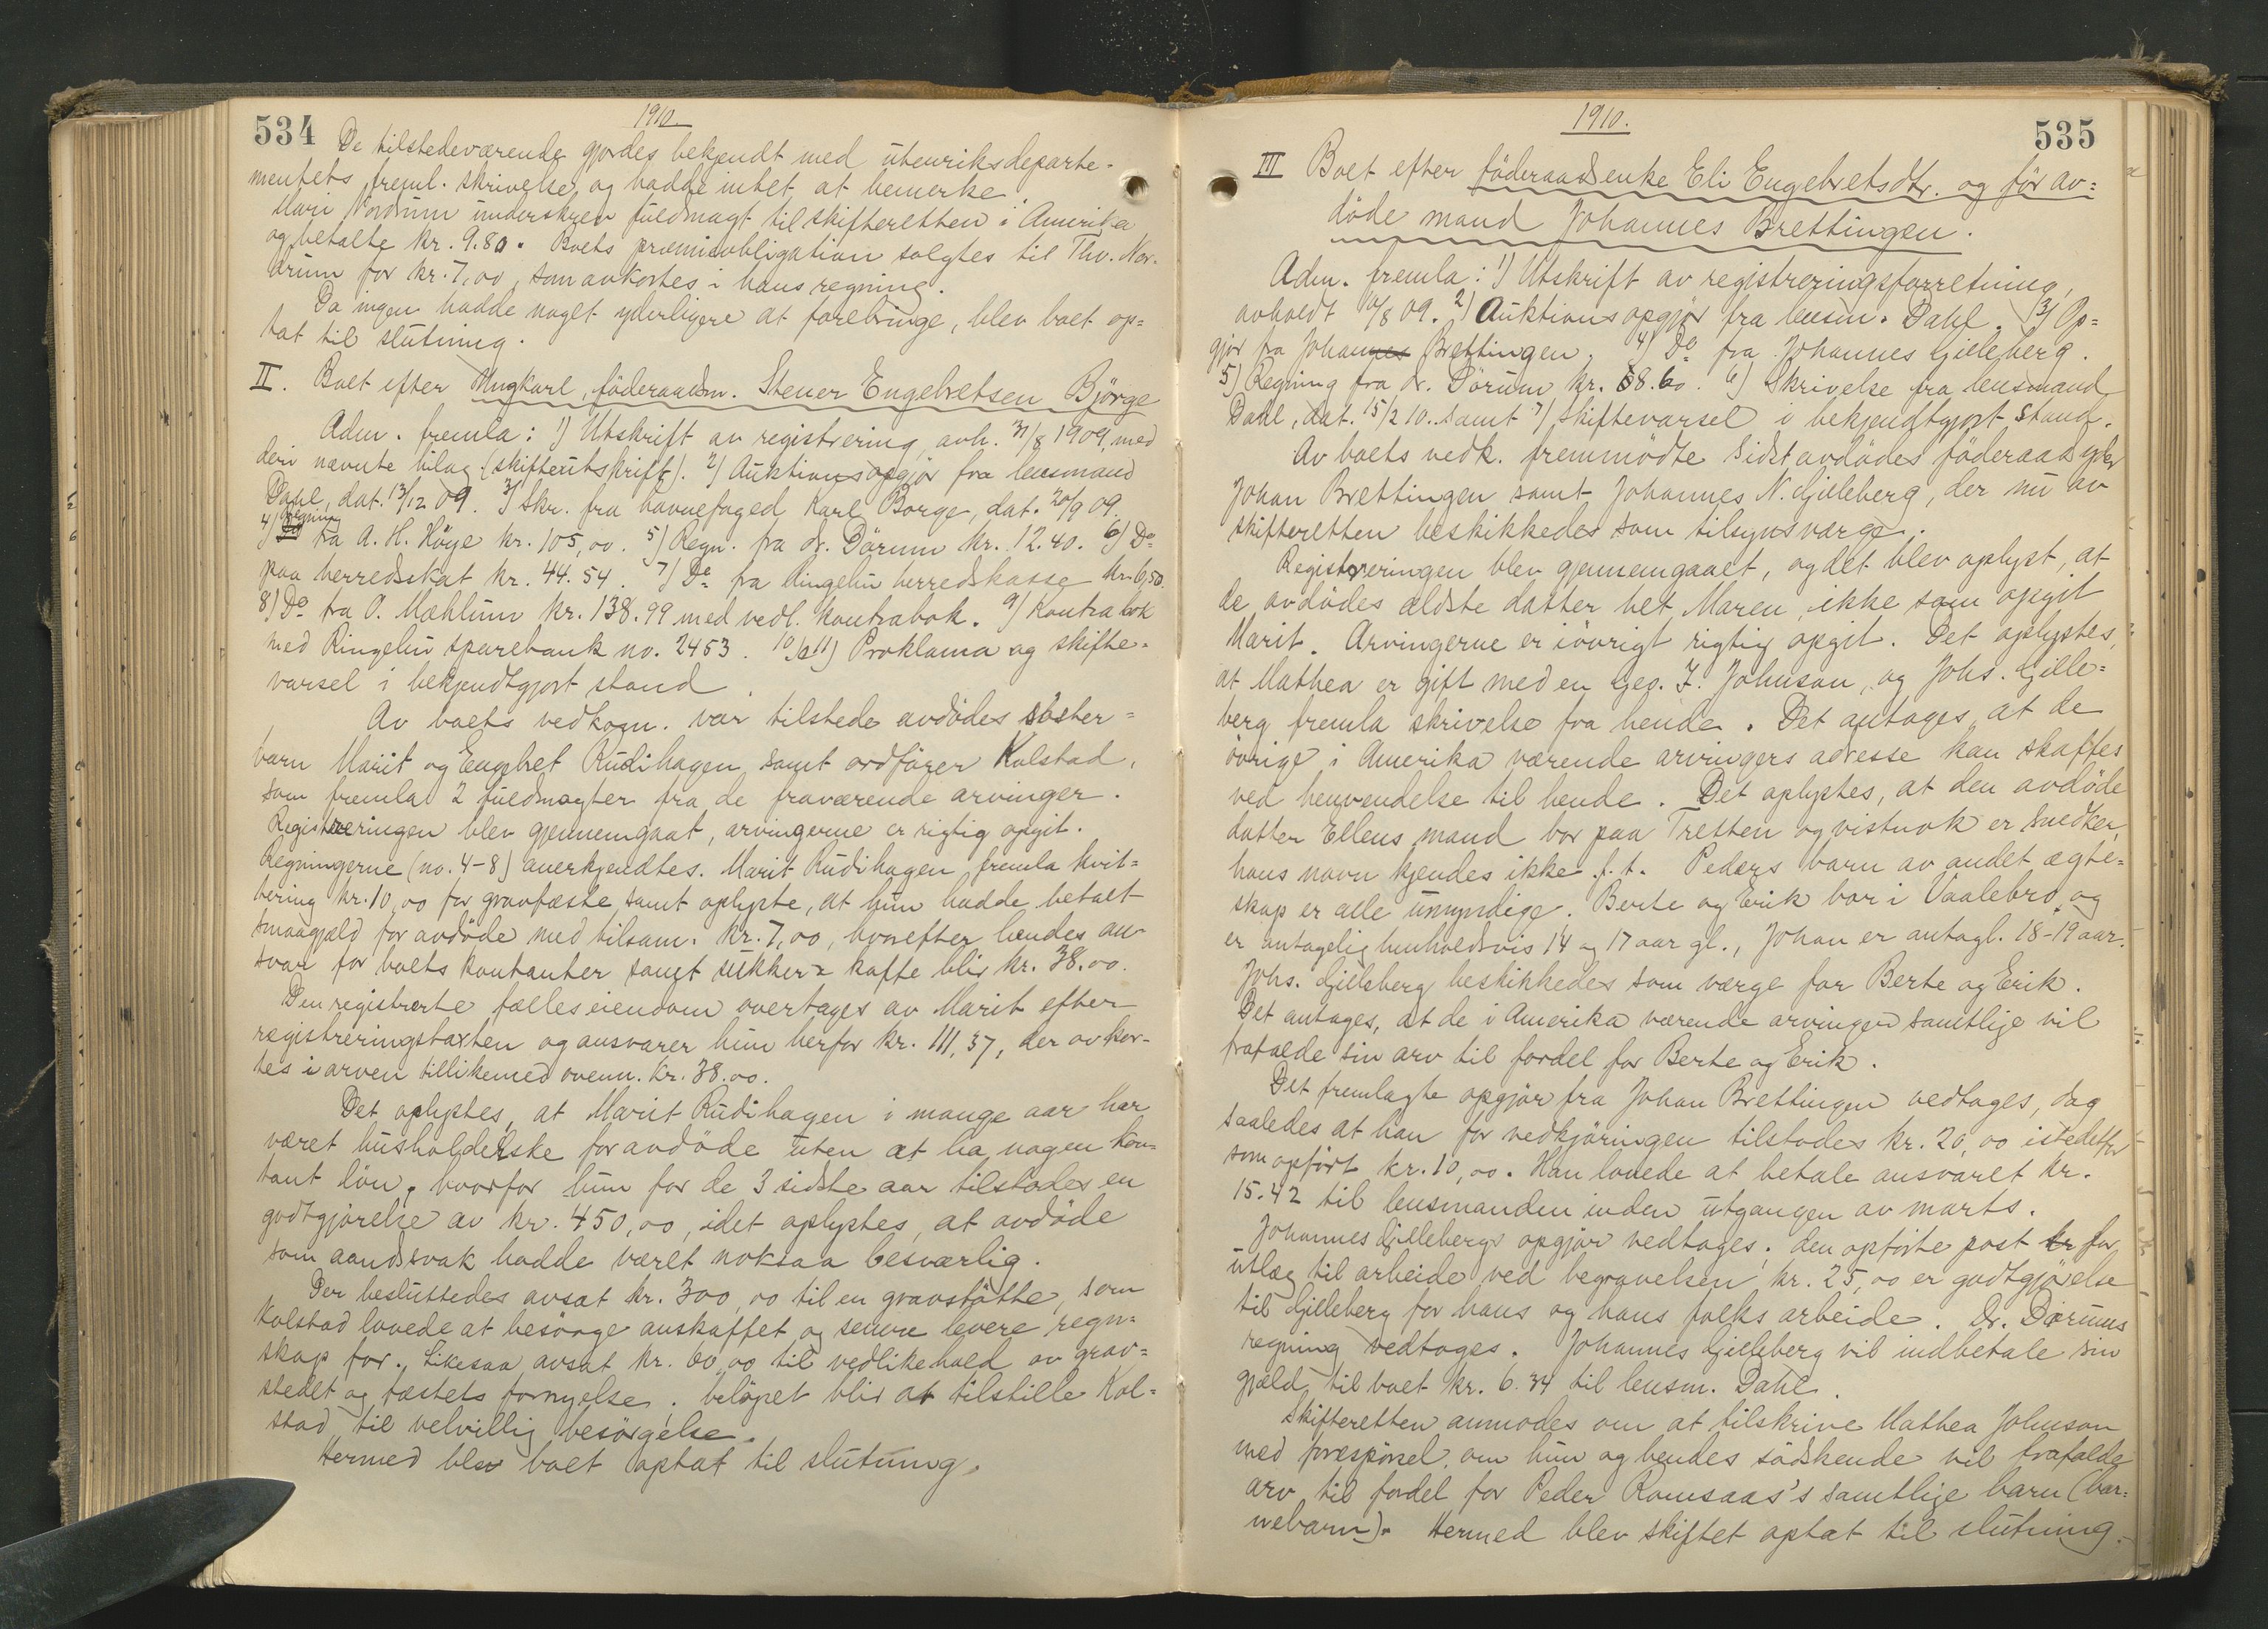 534
1910.
De tilstedeværende gjordes bekjendt med utenriksdeparte-
mentets freml. skrivelse og hadde intet at bemerke.
Mari Nordrum underskrev fuldmagt til skifteretten i Amerika
og betalte kr. 9.80. Boets præmieobligation solgtes til Thv. Nor-
drum for kr. 7,00, som avkortes i hans regning.
Da ingen hadde noget yderligere at forebringe, blev boet op-
tat til slutning.
II. Boet efter ungkarl, föderaadsm. Stener Engebretsen Björge
Adm. fremla: 1) Utskrift av registrering, avh. 31/8 1909, med
deri nævnte bilag (skifteutskrift). 2) Auktionsopgjör fra lensmand
Dahl, dat. 13/12 09. 3) Skr. fra havnefoged Karl Borge, dat. 20/9 09.
4) Regning fra A. H. Höye kr. 105,00. 5) Regn. fra dr. Dörum kr. 12.40. 6) Do
paa herredsskat kr. 44.54. 7) Do fra Ringebu herredskasse kr. 6,50.
8) Do fra O. Mæhlum kr. 138.99 med vedl. kontrabok. 9) Kontrabok
med Ringebu sparebank no. 2453. 10) & 11) Proklama og skifte-
varsel i bekjendtgjort stand.
Av boets vedkom. var tilstede avdödes söster-
barn Marit og Engebret Rudihagen samt ordförer Kolstad,
som fremla 2 fuldmagter fra de fraværende arvinger.
Registreringen blev gjennemgaat, arvingerne er rigtig opgit.
Regningerne (no. 4-8) anerkjendtes. Marit Rudihagen fremla kvit-
tering kr. 10,00 for gravfæste samt oplyste, at hun hadde betalt
smaagjæld for avdöde med tilsam. kr. 7,00, hvorefter hendes an-
svar for boets kontanter samt sukker & kaffe blir kr. 38.00.
Den registrerte fælleseiendom overtages av Marit efter
registreringstaxten og ansvarer hun herfor kr. 111,37, der avkor-
tes i arven tillikemed ovenn. kr. 38.00.
Det oplystes, at Marit Rudihagen i mange aar har
været husholderske for avdöde uten at ha nogen kon-
tant lön, hvorfor hun for de 3 sidste aar tilstodes en
godtgjörelse av kr. 450,00, idet oplystes, at avdöde
som aandssvak hadde været noksaa besværlig.
Der besluttedes avsat kr. 300,00 til en gravstötte, som
Kolstad lovede at besörge anskaffet og senere levere regn-
skap for. Likesaa avsat kr. 60,00 til vedlikehold av grav-
stedet og fæstets fornyelse. Belöpet blir at tilstille Kol-
stad til velvillig besörgelse.
Hermed blev boet optat til slutning.
535
1910.
III Boet efter föderaadsenke Eli Engebretsdtr. og för av-
döde mand Johannes Brettingen.
Adm. fremla: 1) Utskrift av registreringsforretning,
avholdt 10/8 09. 2) Auktionsopgjör fra lensm. Dahl. 3) Op-
gjör fra Johannes Brettingen. 4) Do fra Johannes Gilleberg.
5) Regning fra dr. Dörum kr. 68.60. 6) Skrivelse fra lensmand
Dahl, dat. 15/2 10. samt 7) Skiftevarsel i bekjendtgjort stand.
Av boets vedk. fremmödte sidstavdödes föderaadsyder
Johan Brettingen samt Johannes N. Gilleberg, der nu av
skifteretten beskikkedes som tilsynsværge.
Registreringen blev gjennemgaaet, og det blev oplyst, at
de avdödes ældste datter het Maren, ikke som opgit
Marit. Arvingerne er iövrigt rigtig opgit. Det oplystes,
at Mathea er gift med en Geo. F. Johnson, og Johs. Gille-
berg fremla skrivelse fra hende. Det antages, at de
övrige i Amerika værende arvingers adresse kan skaffes
ved henvendelse til hende. Det oplystes, at den avdöde
datter Ellens mand bor paa Tretten og vistnok er snedker,
hans navn kjendes ikke f.t. Peders barn av andet ægte-
skap er alle umyndige. Berte og Erik bor i Vaalebro og
er antagelig henholdsvis 14 og 17 aar gl., Johan er antagl. 18-19 aar.
Johs. Gilleberg beskikkedes som værge for Berte og Erik.
Det antages, at de i Amerika værende arvinger samtlige vil
frafalde sin arv til fordel for Berte og Erik.
Det fremlagte opgjör fra Johan Brettingen vedtages, dog
saaledes at han for vedkjöringen tilstodes kr. 20,00 istedetfor
som opfört kr. 10,00. Han lovede at betale ansvaret kr.
15.42 til lensmanden inden utgangen av marts.
Johannes Gillebergs opgjör vedtages; den opförte post kr for
utlæg til arbeide ved begravelsen kr. 25,00 er godtgjörelse
til Gilleberg for hans og hans folks arbeide. Dr. Dörums
regning vedtages. Johannes Gilleberg vil indbetale sin
gjæld til boet kr. 6.34 til lensm. Dahl.
Skifteretten anmodes om at tilskrive Mathea Johnson
med forespörsel, om hun og hendes södskende vil frafalde
arv til fordel for Peder Romsaas's samtlige barn (bar-
nebarn). Hermed blev skiftet optat til slutning.